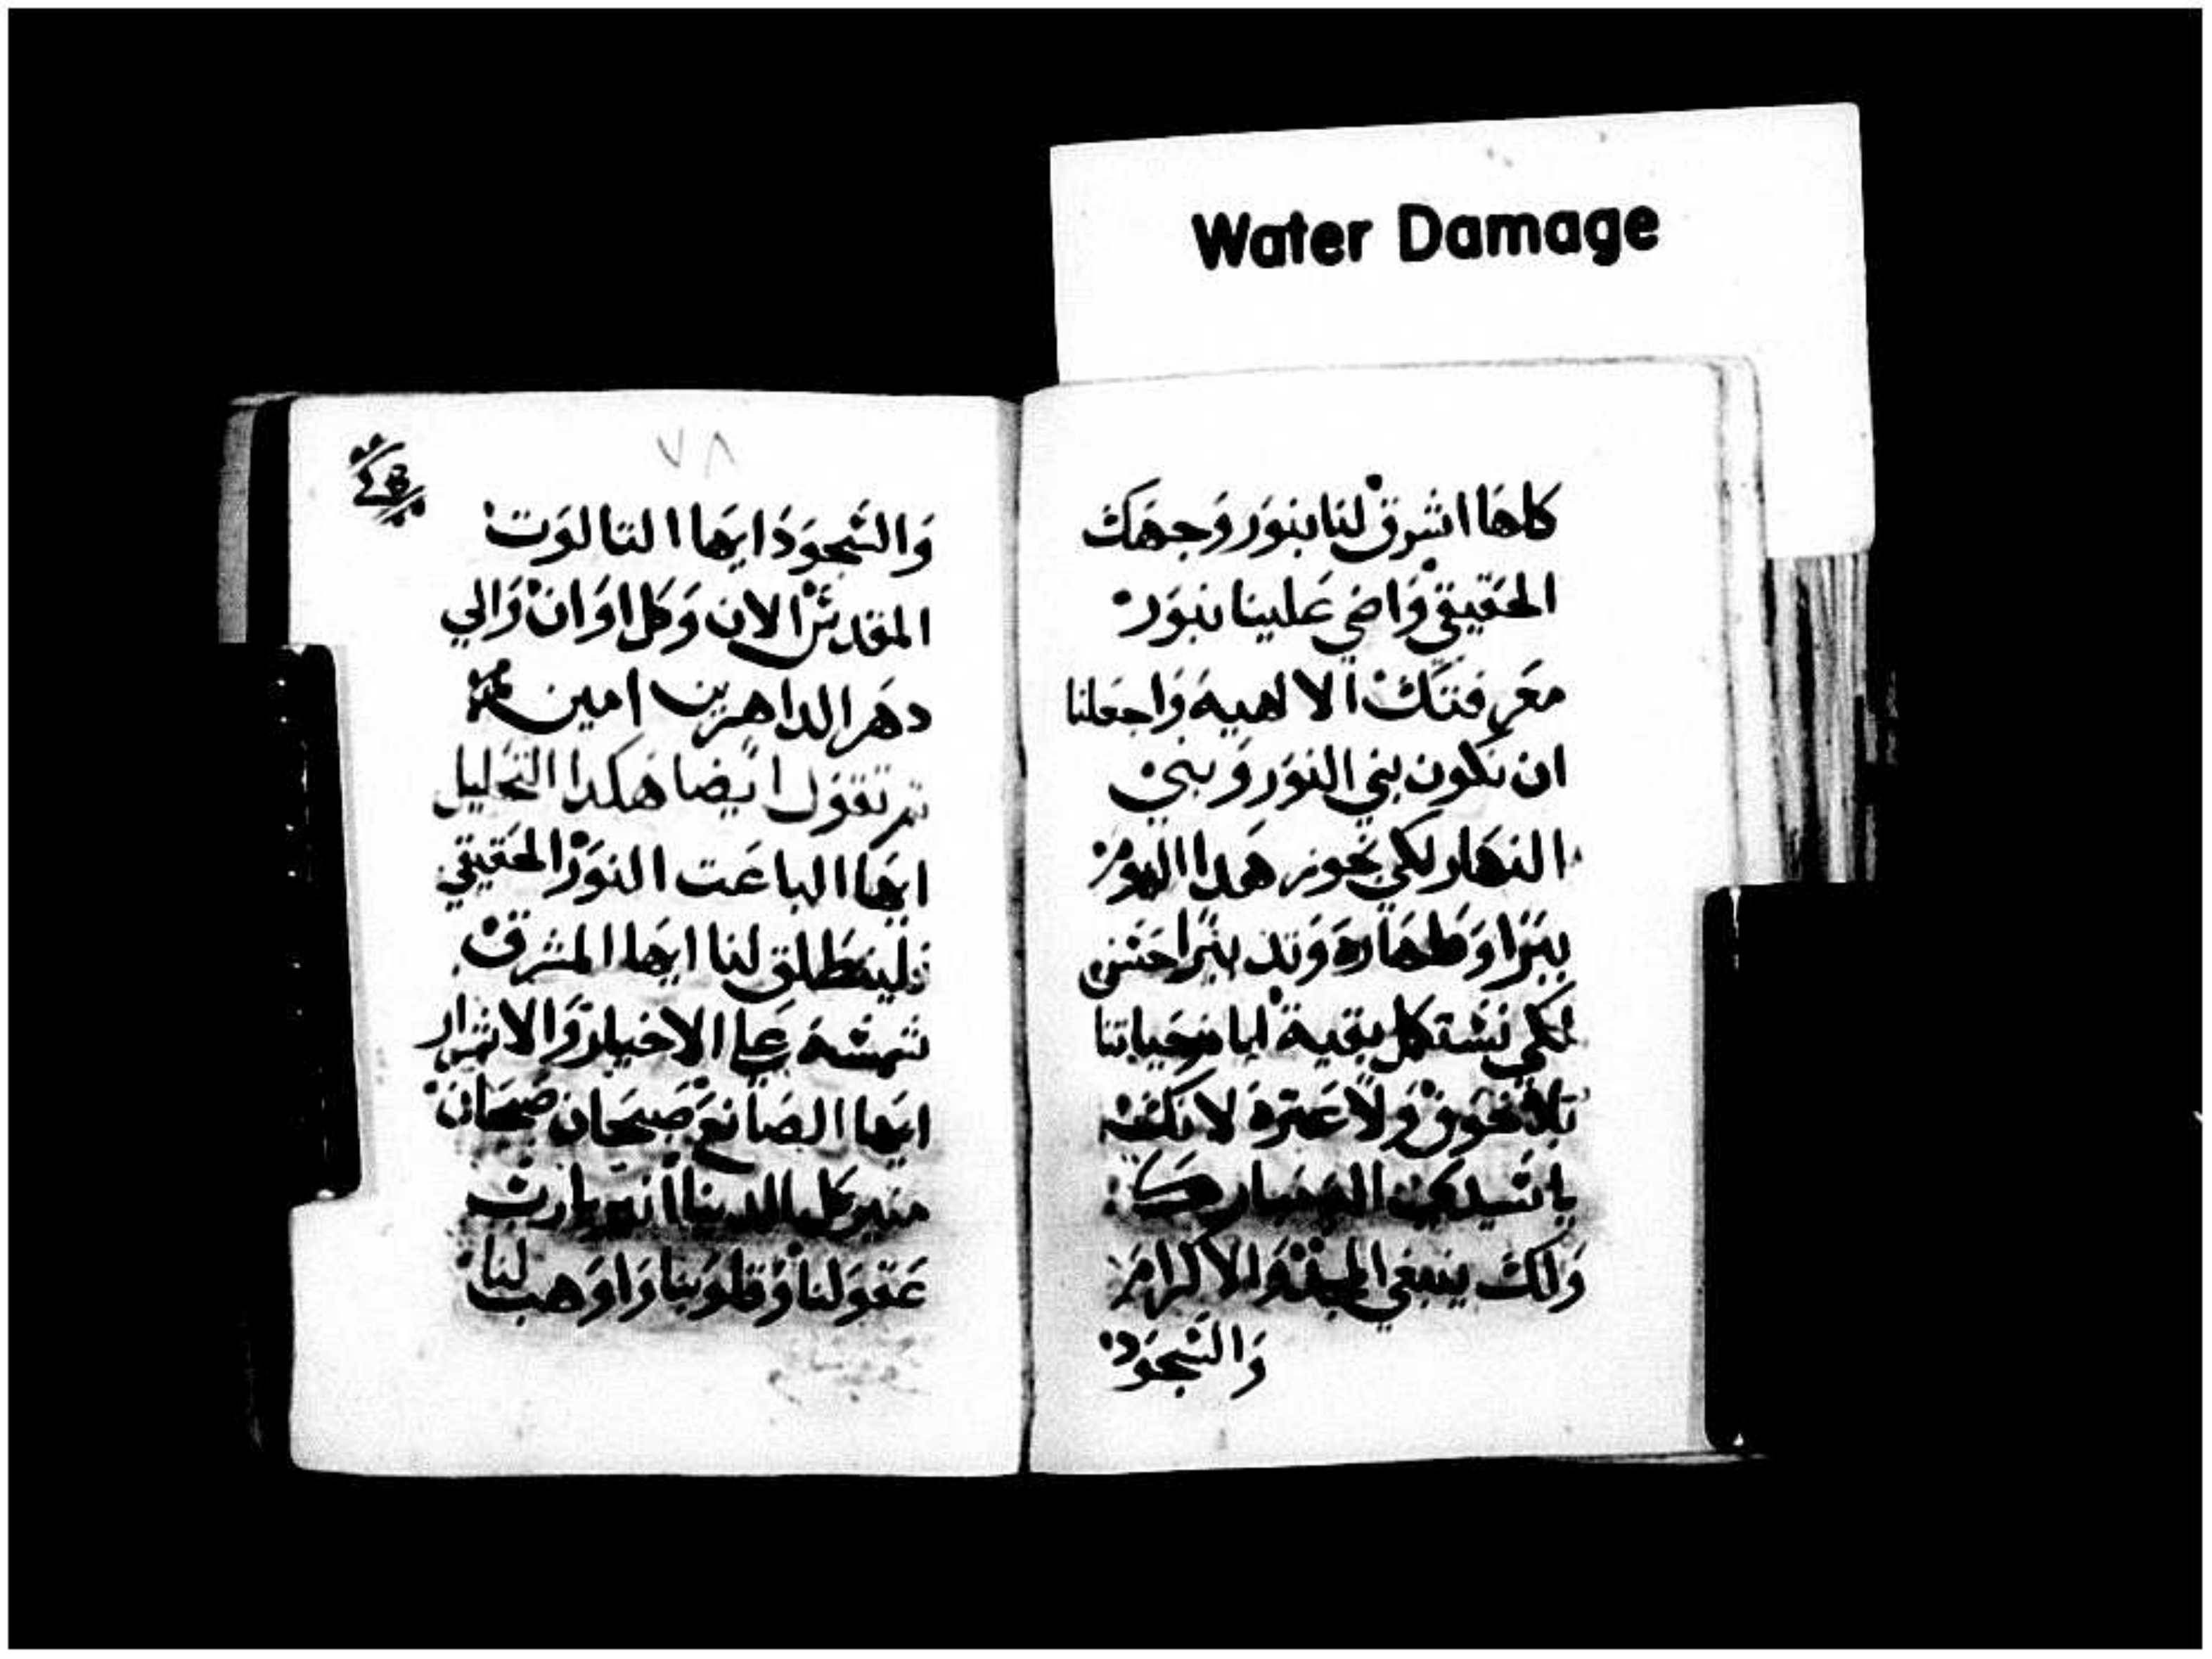 Water Damage
كلها اشرق لنا بنور وجهك
الحقيقي واضي علينا بنور
معرفتك الالهيه واجعلنا
ان نكون بني النور وبني
النهار لكي نجوز هدا اليوم
ببر وطهاره وتدبير احسن
لكي نشتكمل بقية ايام حياتنا
بلا خوف ولا عتره لانك
يا شيدي
ولك ينبغي المجد والاكرام
والشجود
٧٨
والشجود ايها التالوت
المقدش الان وكل اوان والي
دهر الداهرين امين
تم تقول ايضا هكدا التحليل
ايها الباعت النور الحقيقي
فلينطلق لنا ايها المشرق
شمشه علي الاخيار والاشرار
ايها الصانع صبحان صبحان
منير كل الدنيا انير يارب
عقولنا وقلوبنا واوهب لنا